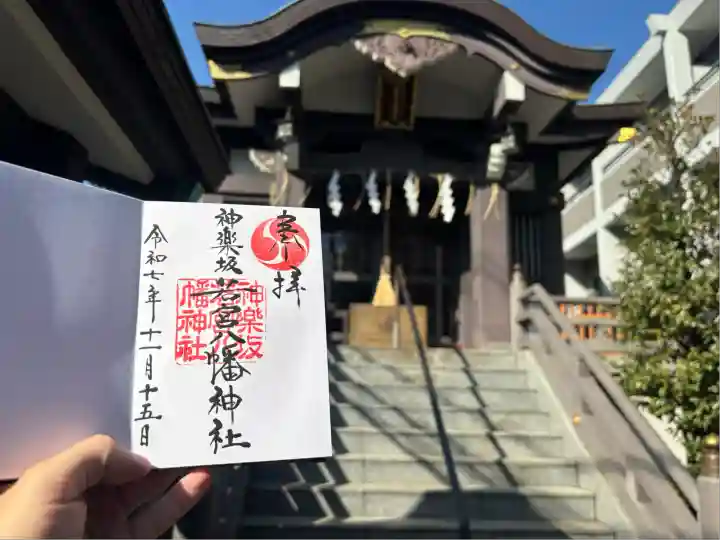 奉拝
神楽坂
若宮八幡神社
神楽坂
若宮八
幡神社
令和七年十一月十五日